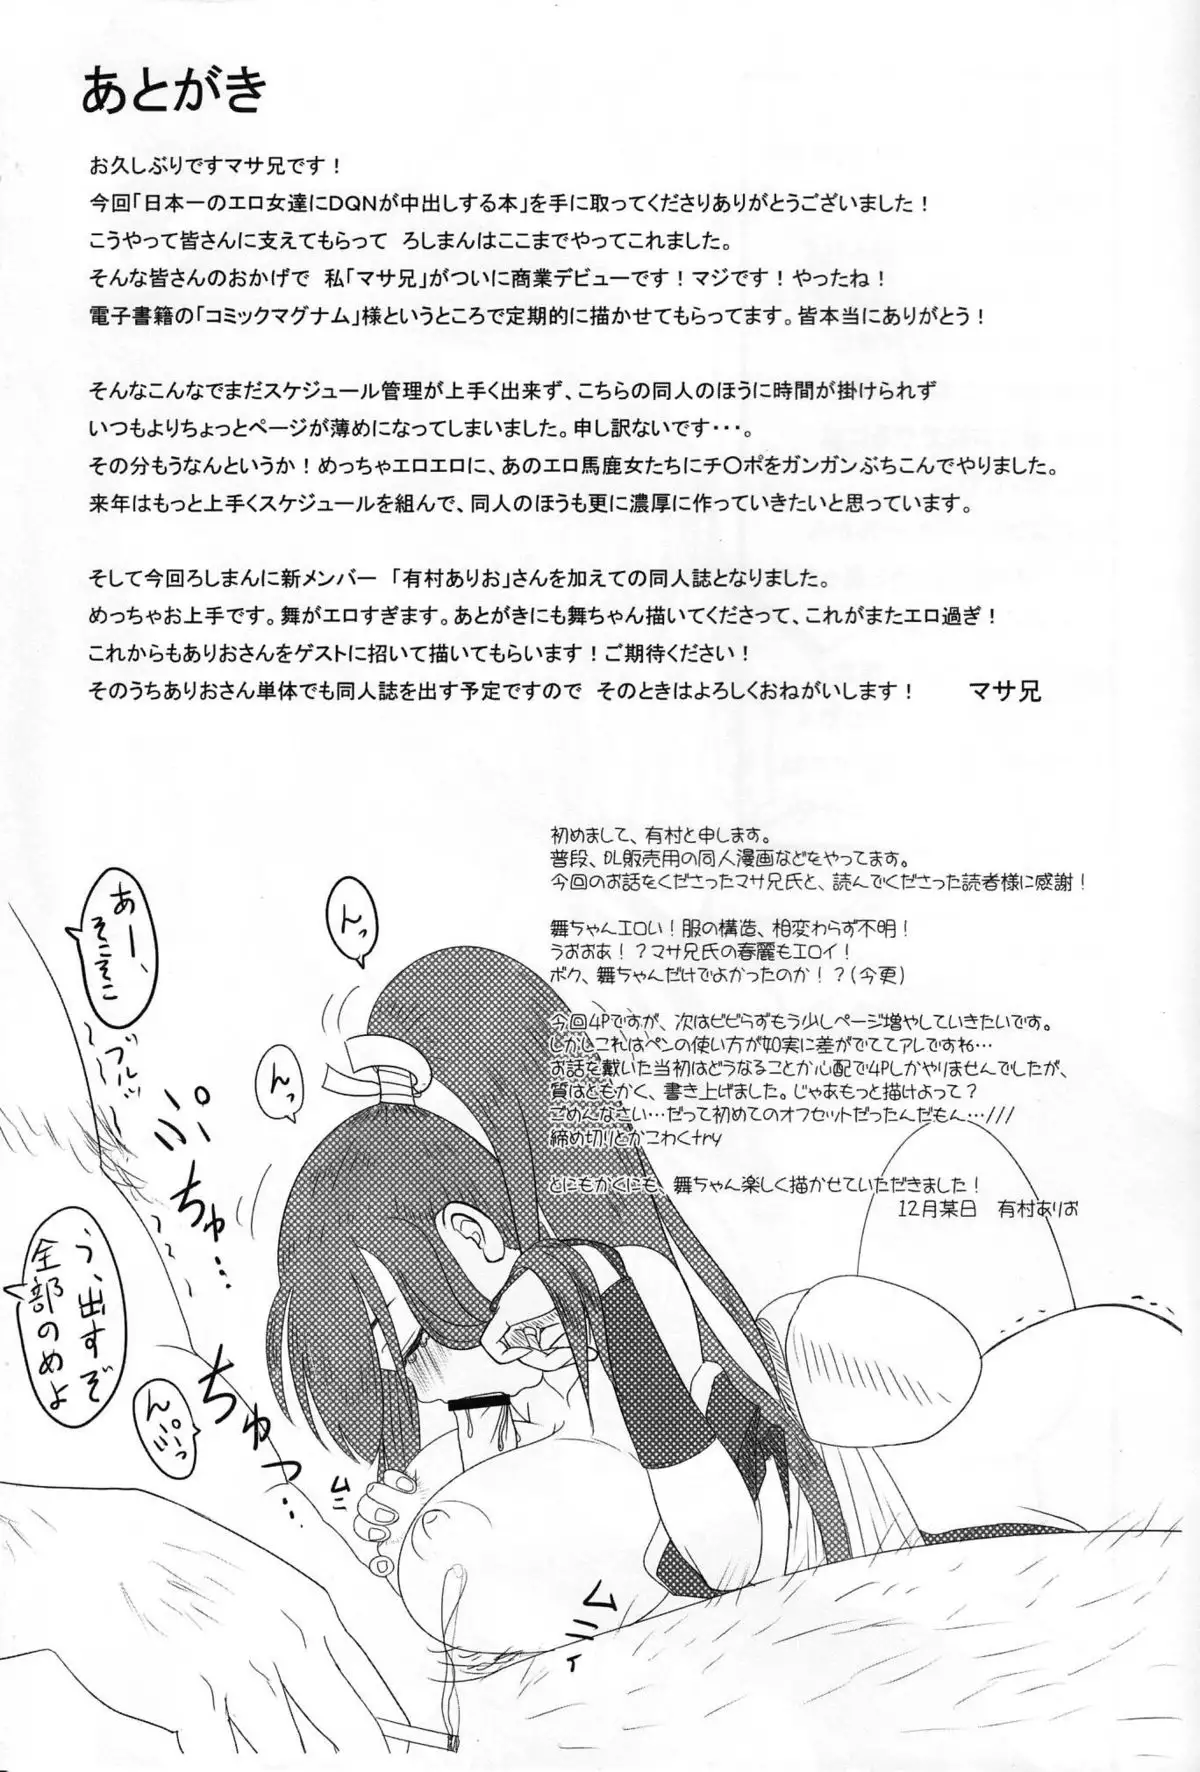 あとがき
お久しぶりですマサ兄です！
今回「日本一のエロ女達にDQNが中出しする本」を手に取ってくださりありがとうございました！
こうやって皆さんに支えてもらって　ろしまんはここまでやってこれました。
そんな皆さんのおかげで　私「マサ兄」がついに商業デビューです！マジです！やったね！
電子書籍の「コミックマグナム」様というところで定期的に描かせてもらってます。皆本当にありがとう！
そんなこんなでまだスケジュール管理が上手く出来ず、こちらの同人のほうに時間が掛けられず
いつもよりちょっとページが薄めになってしまいました。申し訳ないです・・・。
その分もうなんというか！めっちゃエロエロに、あのエロ馬鹿女たちにチ〇ポをガンガンぶちこんでやりました。
来年はもっと上手くスケジュールを組んで、同人のほうも更に濃厚に作っていきたいと思っています。
そして今回ろしまんに新メンバー　「有村ありお」さんを加えての同人誌となりました。
めっちゃお上手です。舞がエロすぎます。あとがきにも舞ちゃん描いてくださって、これがまたエロ過ぎ！
これからもありおさんをゲストに招いて描いてもらいます！ご期待ください！
そのうちありおさん単体でも同人誌を出す予定ですので　そのときはよろしくおねがいします！　　マサ兄
初めまして、有村と申します。
普段、DL販売用の同人漫画などをやってます。
今回のお話をくださったマサ兄氏と、読んでくださった読者様に感謝！
舞ちゃんエロい！服の構造、相変わらず不明！
うおおあ！？マサ兄氏の春麗もエロイ！
ボク、舞ちゃんだけでよかったのか！？(今更)
今回4Pですが、次はビビらずもう少しページ増やしていきたいです。
しかしこれはペンの使い方が如実に差がでててアレですね…
お話を戴いた当初はどうなることか心配で4Pしかやりませんでしたが、
質はともかく、書き上げました。じゃあもっと描けよって？
ごめんなさい…だって初めてのオフセットだったんだもん…///
締め切りとかこわくtry
とにもかくにも、舞ちゃん楽しく描かせていただきました！
12月某日　有村ありお
あー、
そこそこ
んっ
んっ
ブルッ
ぷちゅ…
う、出すぞ
全部のめよ
ちゅっ…
ムニ
ムニィ